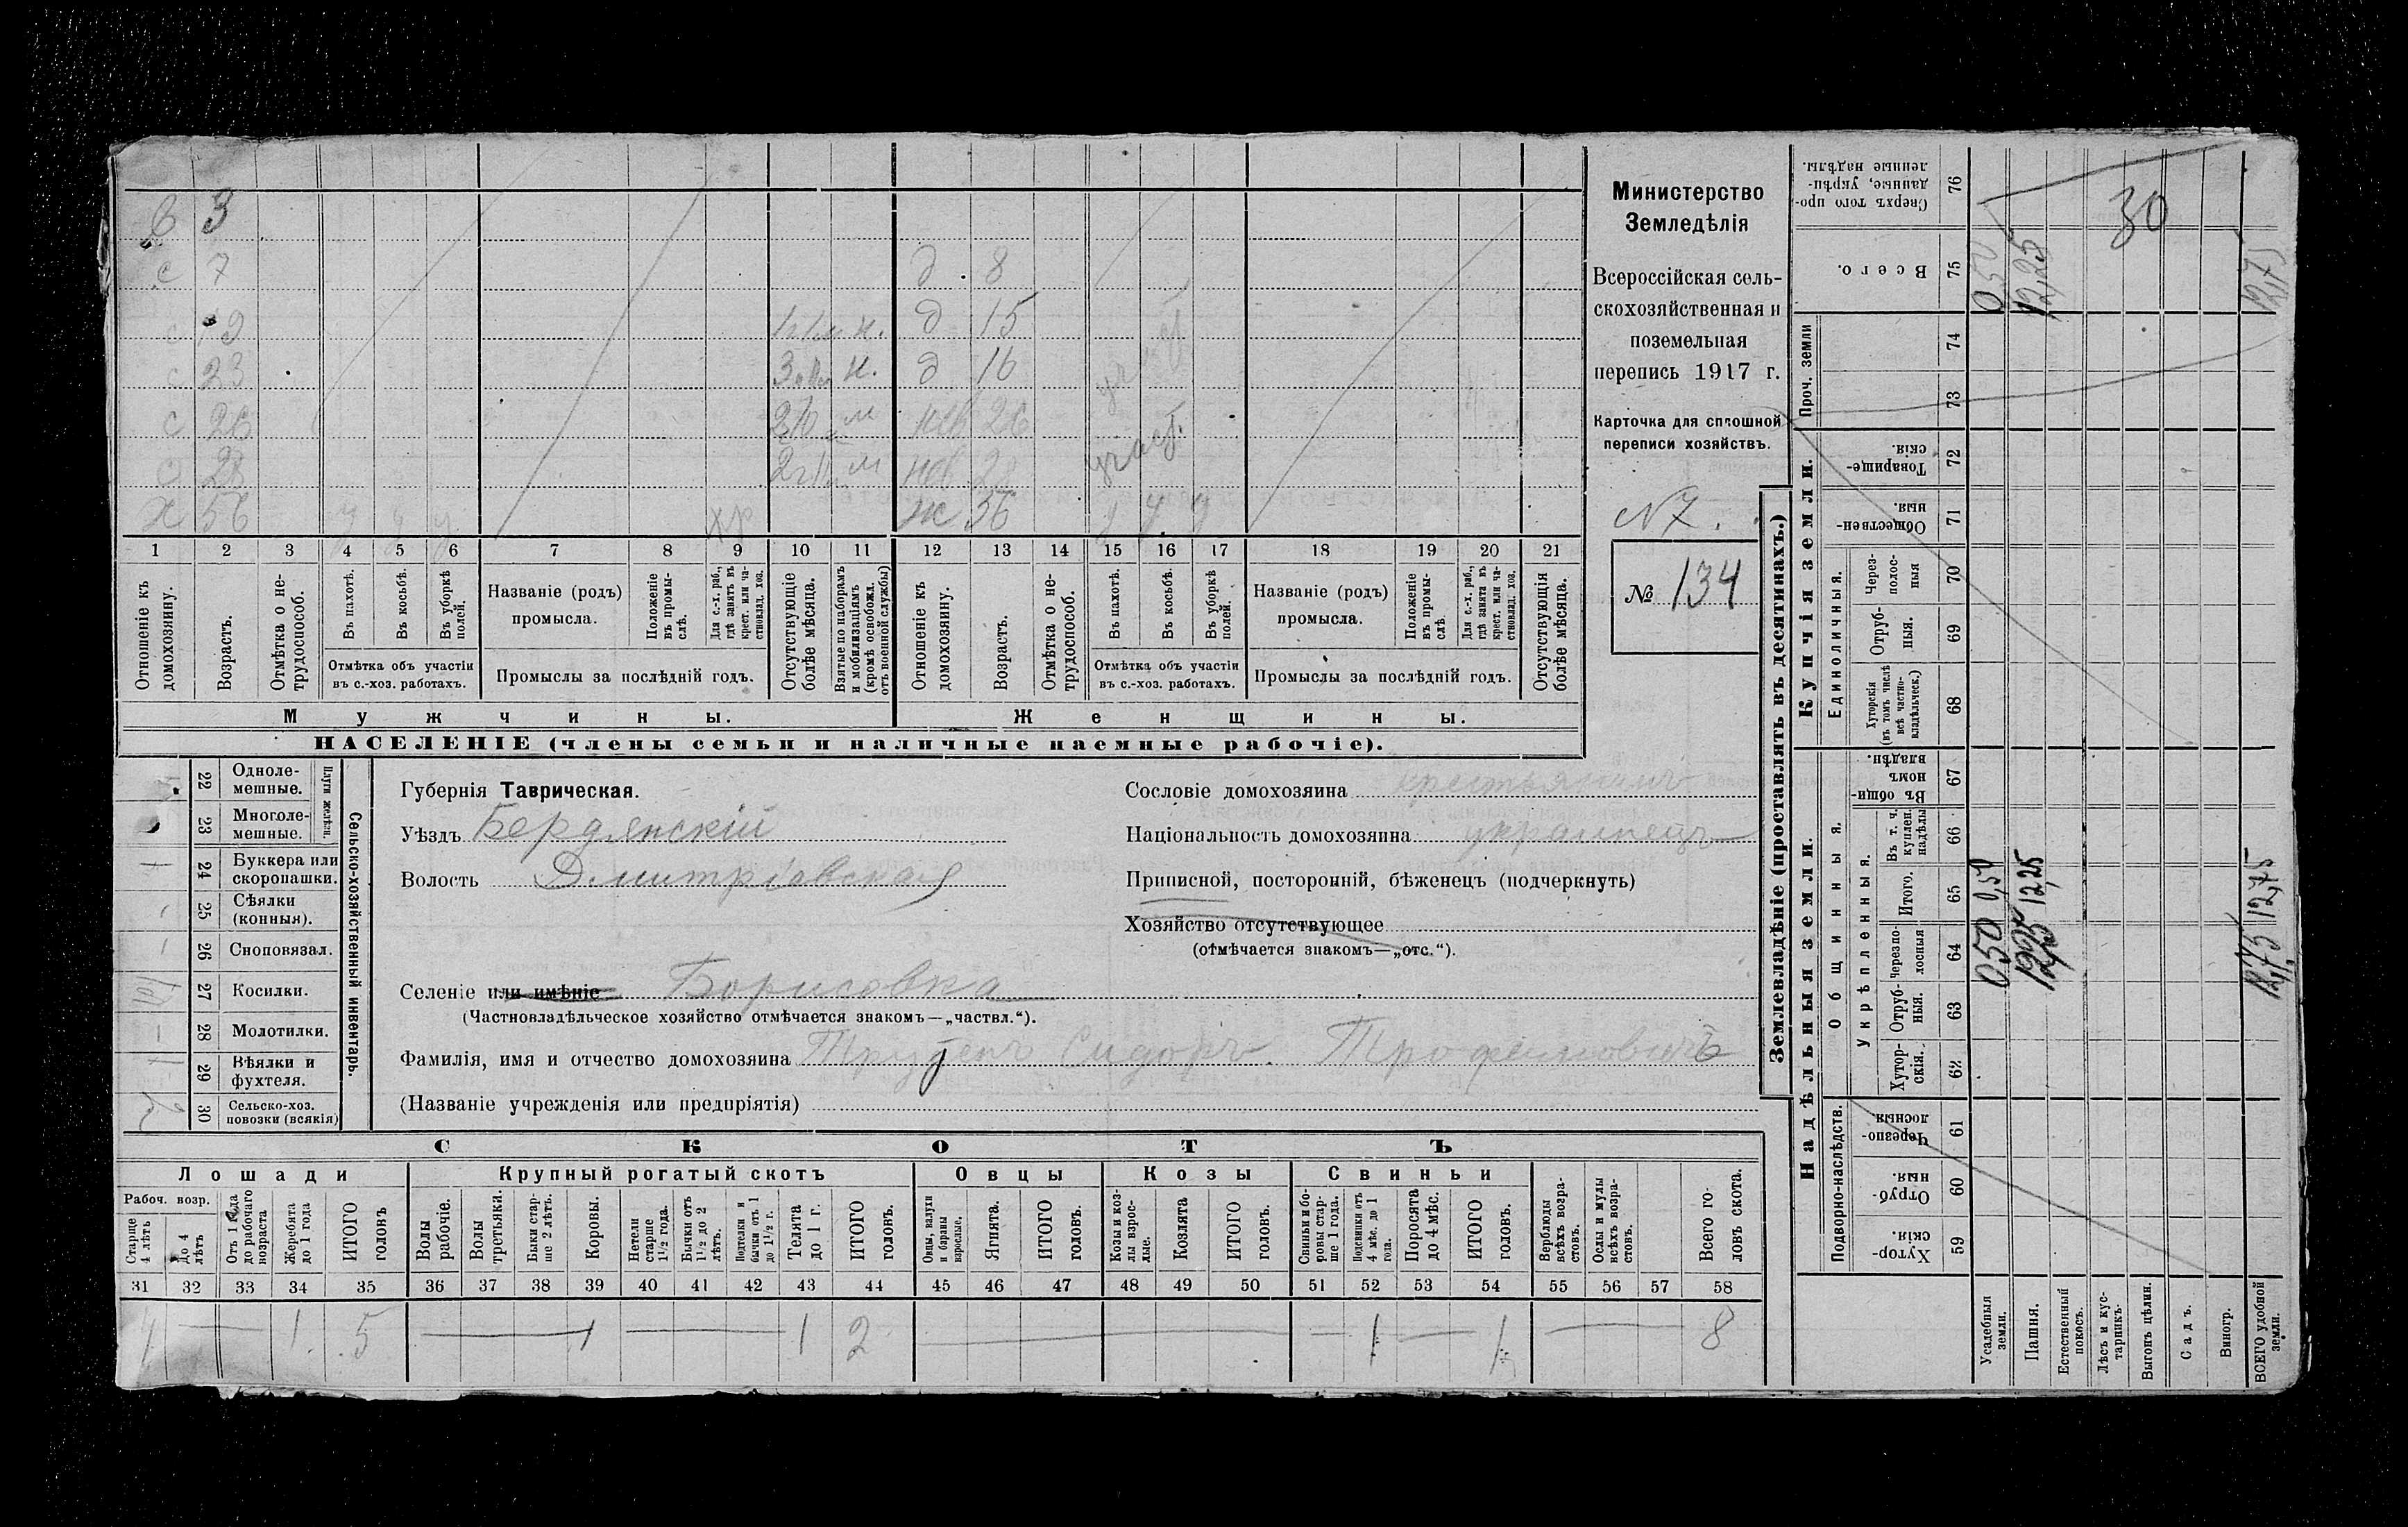 в 3
с 7 д 8
с 19 н. д 15
с 23 н. д 16
с 26 м нев 26
с 28 м нев 28
х 56 у у у хр ж 56 у у у
1 2 3 4 5 6 7 8 9 10 11 12 13 14 15 16 17 18 19 20 21
Отношеніе къ домохозяину.
Возрастъ.
Отмѣтка о не-трудоспособ.
Въ пахотѣ.
Въ косьбѣ.
Въ уборкѣ полей.
Отмѣтка объ участіи
въ с.-хоз. работахъ.
Названіе (родъ)
промысла.
Положеніе въ промы-слѣ.
Для с.-х. раб., гдѣ занятъ въ крест. или ча-стновлад. хоз.
Промыслы за послѣдній годъ.
Отсутствующіе болѣе мѣсяца.
Взятые по наборамъ и мобилизаціямъ (кромѣ освобожд. отъ военной службы)
Отношеніе къ домохозяину.
Возрастъ.
Отмѣтка о не-трудоспособ.
Въ пахотѣ.
Въ косьбѣ.
Въ уборкѣ полей.
Отмѣтка объ участіи
въ с.-хоз. работахъ.
Названіе (родъ)
промысла.
Положеніе въ промы-слѣ.
Для с.-х. раб., гдѣ занята въ крест. или ча-стновлад. хоз.
Промыслы за послѣдній годъ.
Отсутствующія болѣе мѣсяца.
Мужчины.
Женщины.
НАСЕЛЕНІЕ (члены семьи и наличные наемные рабочіе).
Министерство
Земледѣлія
Всероссійская сель-
скохозяйственная и
поземельная
перепись 1917 г.
Карточка для сплошной
переписи хозяйствъ.
N 7.
№ 134
Сельско-хозяйственный инвентарь.
Плуги желѣзн.
22 Одноле-мешные.
23 Многоле-мешные.
24 Буккера или скоропашки.
25 Сѣялки (конныя).
26 Сноповязал.
27 Косилки.
28 Молотилки.
29 Вѣялки и фухтеля.
30 Сельско-хоз. повозки (всякія)
Губернія Таврическая.
Уѣздъ Бердянскій
Волость Дмитріевская
Селеніе или имѣніе Борисовка
(Частновладѣльческое хозяйство отмѣчается знакомъ—„частвл.“).
Фамилія, имя и отчество домохозяина Сидоръ Трофимовичъ
(Названіе учрежденія или предпріятія)
Сословіе домохозяина крестьянинъ
Національность домохозяина украинецъ
Приписной, посторонній, бѣженецъ (подчеркнуть)
Хозяйство отсутствующее
(отмѣчается знакомъ—„отс.“).
СКОТЪ
Лошади
Крупный рогатый скотъ
Овцы
Козы
Свиньи
Рабоч. возр.
Старше 4 лѣтъ
До 4 лѣтъ
Отъ 1 года до рабочаго возраста
Жеребята до 1 года
ИТОГО головъ
Волы рабочіе.
Волы третьяки.
Быки стар-ше 2 лѣтъ.
Коровы.
Нетели старше 1½ года.
Бычки отъ 1½ до 2 лѣтъ.
Подтелки и бычки отъ 1 до 1½ г.
Телята до 1 г.
ИТОГО головъ.
Овцы, валухи и бараны взрослые.
Ягнята.
ИТОГО головъ.
Козы и коз-лы взрос-лые.
Козлята
ИТОГО головъ.
Свиньи и бо-ровы стар-ше 1 года.
Подсвинки отъ 4 мѣс. до 1 года.
Поросята до 4 мѣс.
ИТОГО головъ.
Верблюды всѣхъ возра-стовъ.
Ослы и мулы всѣхъ возра-стовъ.
Всего го-ловъ скота.
31 32 33 34 35 36 37 38 39 40 41 42 43 44 45 46 47 48 49 50 51 52 53 54 55 56 57 58
4 — 1 5 — 1 — 1 2 — 1 — 1 — 8
Землевладѣніе (проставлять въ десятинахъ.)
Надѣльныя земли.
Купчія земли.
Проч. земли
Подворно-наслѣдств.
Общинныя.
Укрѣпленныя.
Единоличныя.
Хутор-скія. 59
Отруб-ныя. 60
Черезпо-лосныя 61
Хутор-скія. 62
Отруб-ныя. 63
Черезпо-лосныя 64
Итого. 65
Въ т. ч. куплен. надѣлы 66
Въ общин-номъ владѣн. 67
Хуторскія (въ томъ числѣ всѣ частно-владѣльческ.) 68
Отруб-ныя. 69
Через-полос-ныя 70
Обществен-ныя. 71
Товарище-скія. 72
73
74
Всего. 75
Сверхъ того про-данные, укрѣп-ленные надѣлы. 76
Усадебныя земли. 0,50 0,50 0,50
Пашня. 12,25 12,25 12,25
Естественный покосъ.
Лѣсъ и кус-тарникъ.
Выгонъ цѣлин.
Садъ.
Виногр.
ВСЕГО удобной земли. 12,75 12,75 12,75
30